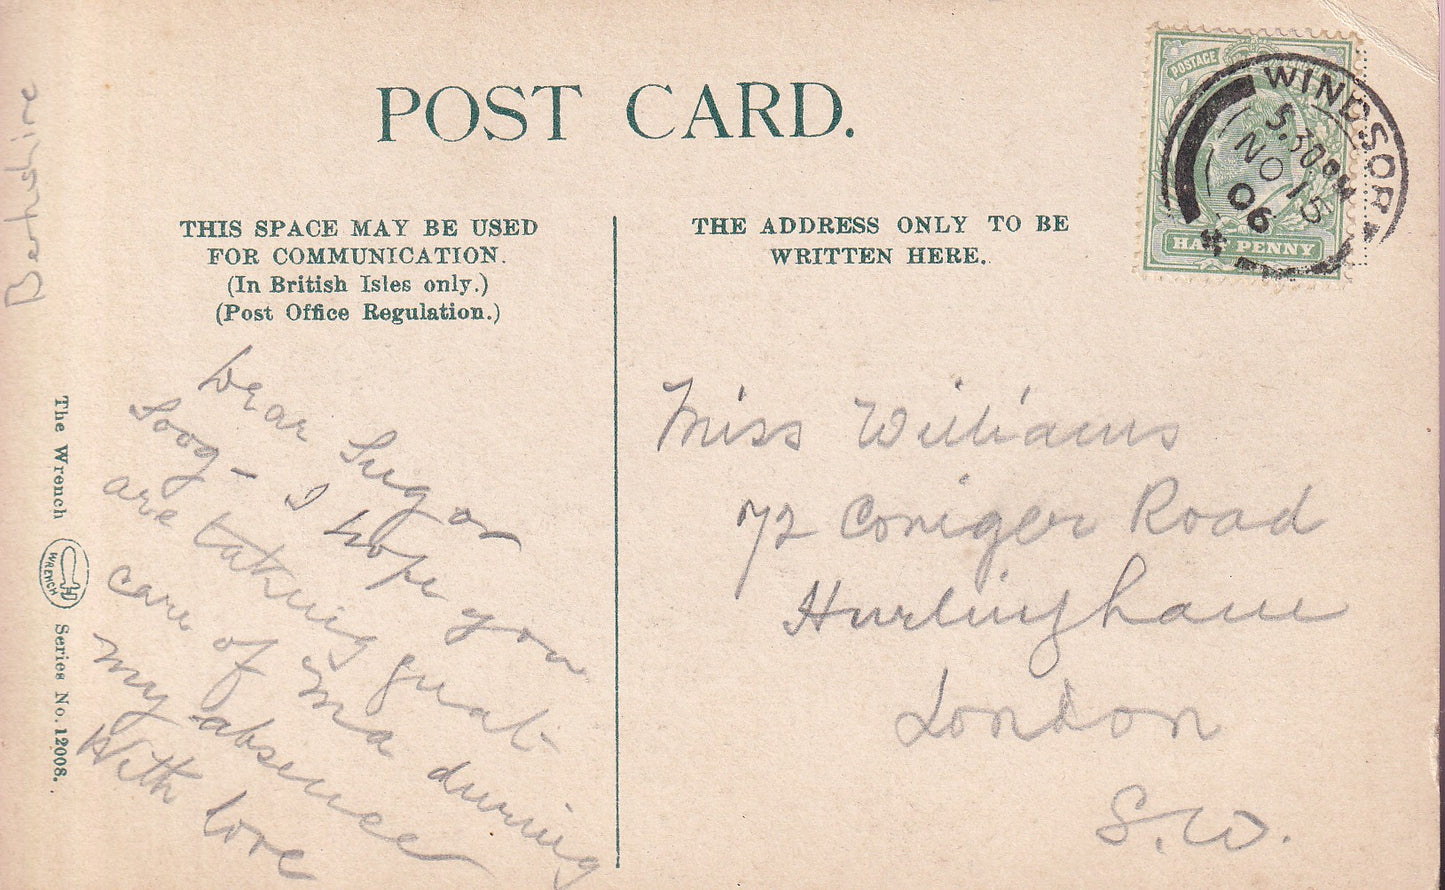 POST CARD.
THIS SPACE MAY BE USED
FOR COMMUNICATION.
(In British Isles only.)
(Post Office Regulation.)
THE ADDRESS ONLY TO BE
WRITTEN HERE.
POSTAGE
HALFPENNY
WINDSOR
5.30PM
NO 15
06
Berkshire
The Wrench
WRENCH
Series No. 12008.
Dear Sugar
Soog - I hope you
are taking great
care of Ma during
my absence
With love
Miss Williams
72 Coniger Road
Hurlingham
London
S.W.